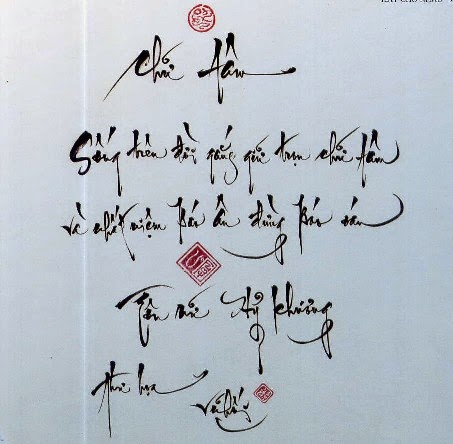 Chữ tâm
Sống trên đời gắng giữ trọn chữ tâm
Và nhất niệm báo ân đừng báo oán
Tôn nữ Hỷ Khương
Thư họa
Vũ Hối